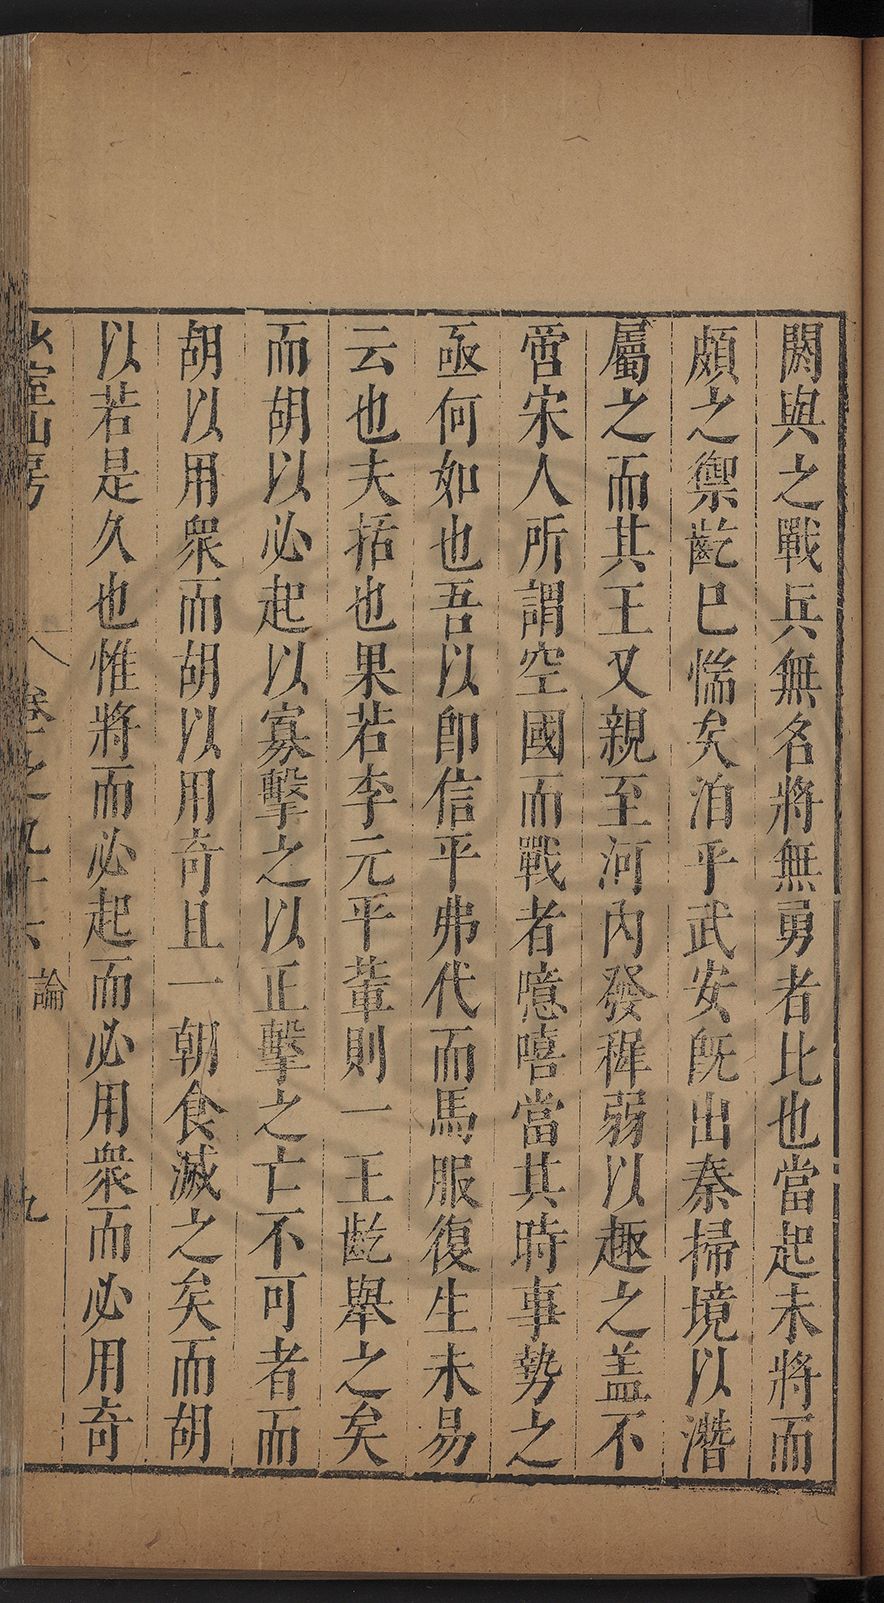 閼與之戰兵無名將無勇者比也當起未將而
頗之禦齕已惴矣洎乎武安旣出秦掃境以濳
屬之而其王又親至河內發稺弱以趣之盖不
啻宋人所謂空國而戰者噫嘻當其時事勢之
亟何如也吾以卽信平弗代而馬服復生未易
云也夫括也果若李元平董則一王齕舉之矣
而胡以必起以寡擊之以正擊之亡不可者而
胡以用衆而胡以用奇且一朝食滅之矣而胡
以若是久也惟將而必起而必用衆而必用奇
少室山房 卷之九十六 論 九